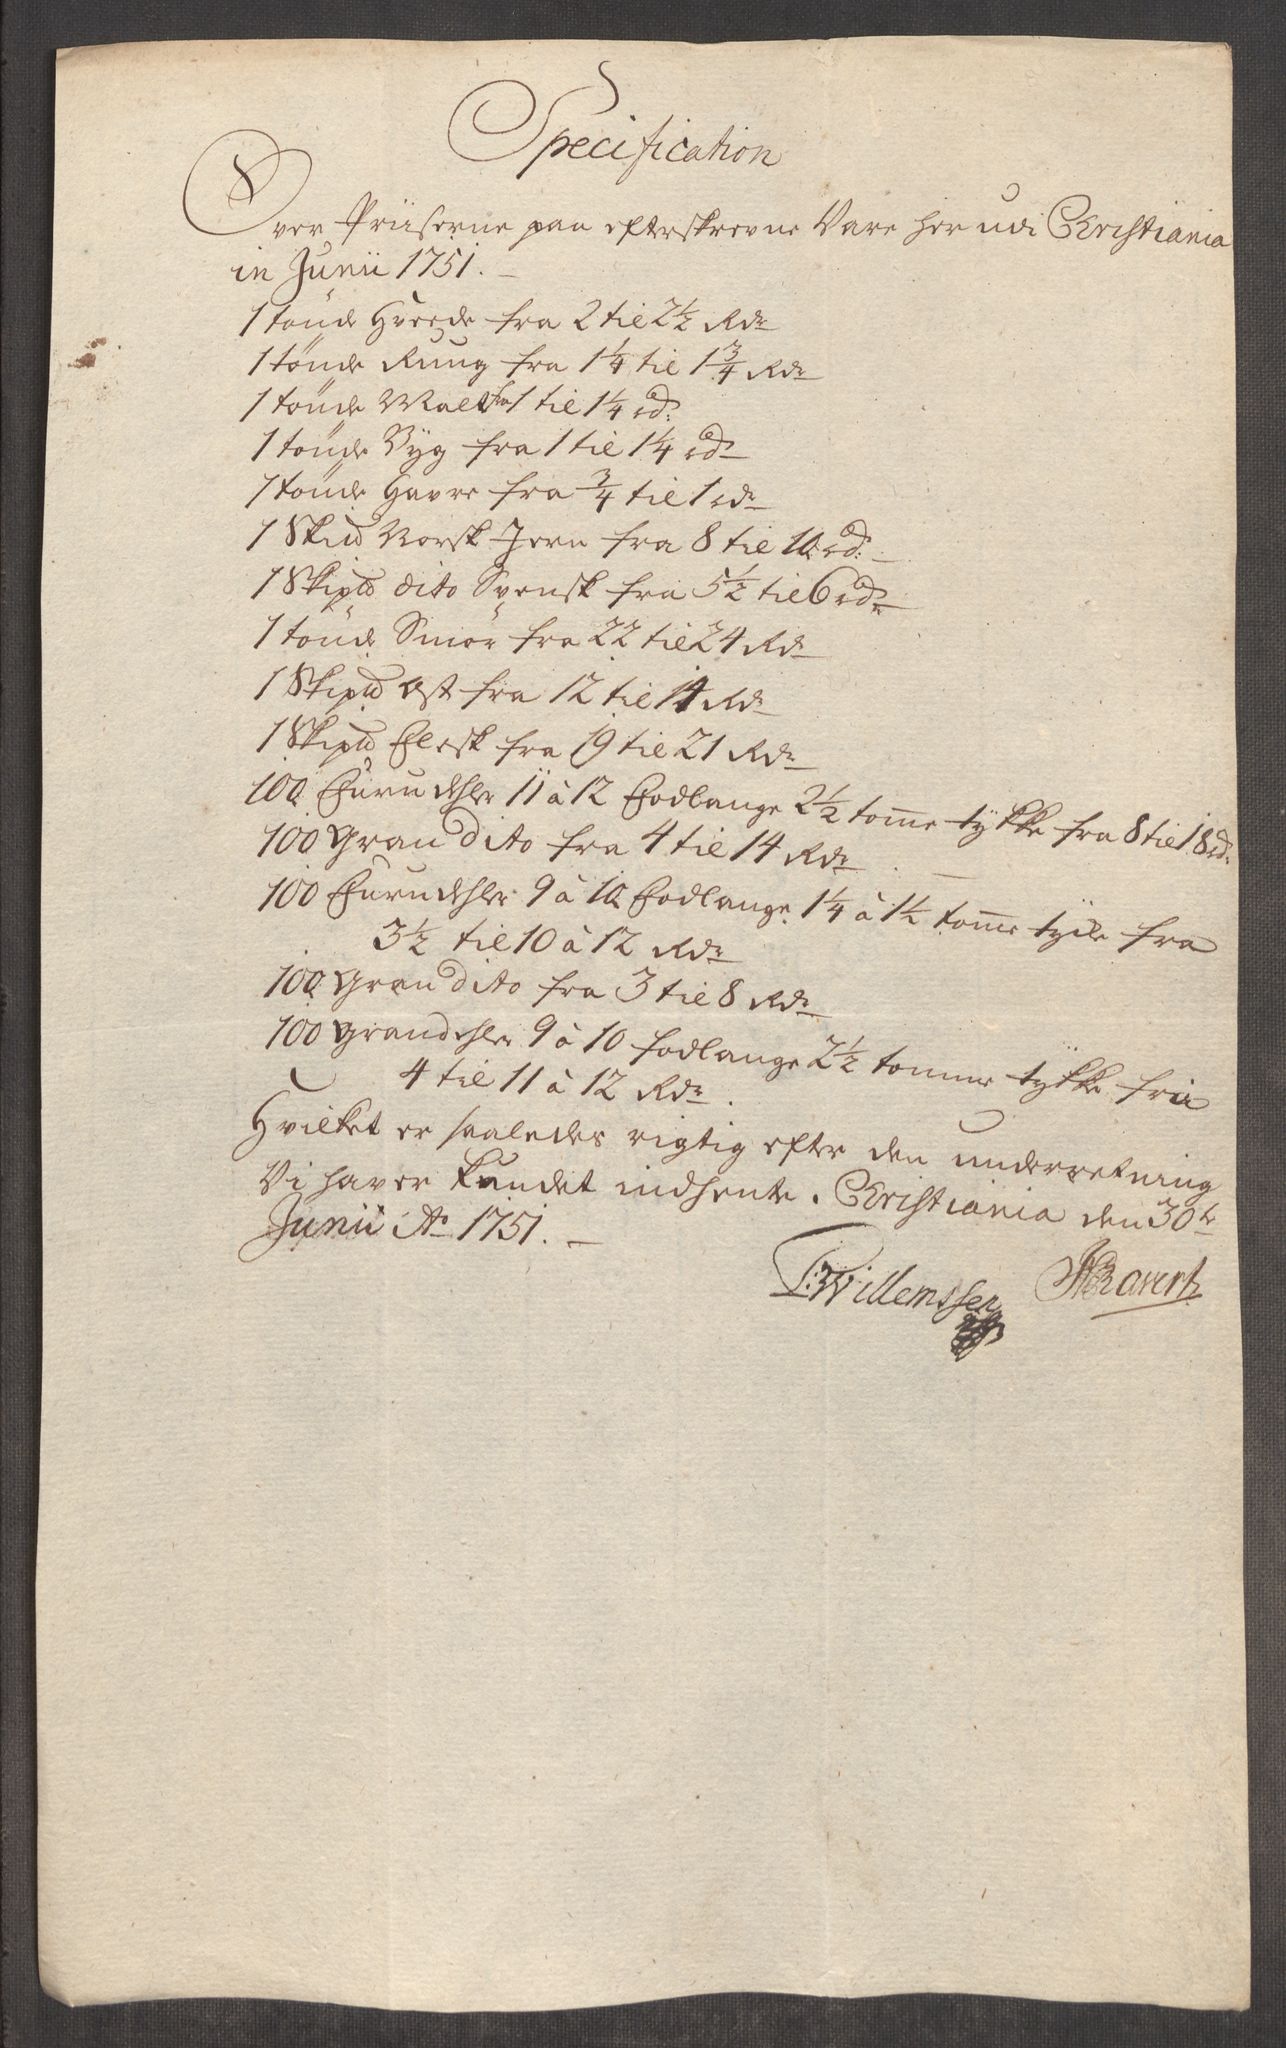 Specification
Over Priiserne paa efterskrevne Vare her udi Christiania
in Junii 1751.
1 tönde Hvede fra 2 til 2½ Rdr
1 tönde Rug fra 1¼ til 1¾ Rdr
1 tönde Malt fra 1 til 1¼ rd:
1 tönde Byg fra 1 til 1¼ rdr
1 tönde Havre fra ¾ til 1 rdr
1 Skid Norsk Jern fra 8 til 10 rd:
1 Skipd dito Svensk fra 5½ til 6 rdr
1 tönde Smör fra 22 til 24 Rdr
1 Skipd Ost fra 12 til 14 Rdr
1 Skipd Flesk fra 19 til 21 Rdr
100 Furu dehler 11 à 12 Fodlange 2½ tomme tÿkke fra 8 til 18 rd:
100 Gran dito fra 4 til 14 Rdr
100 Furu dehler 9 à 10 Fodlange 1¼ à 1½ tomme fra
3½ til 10 à 12 Rdr
100 Gran dito fra 3 til 8 Rdr
100 Grandehler 9 à 10 fodlange 2½ tomme tÿkke fra
4 til 11 à 12 Rdr.
Hvilket er saaledes rigtig efter den underretning
Vi haver kundet indhente. Christiania den 30te
Junii Ao 1751.
Willemssen Ravert